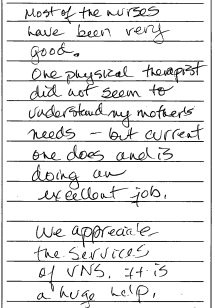 Most of the nurses
have been very
good.
One physical therapist
did not seem to
understand my mother's
needs – but current
one does and is
doing an
excellent job.
We appreciate
the services
of VNS. It is
a huge help.